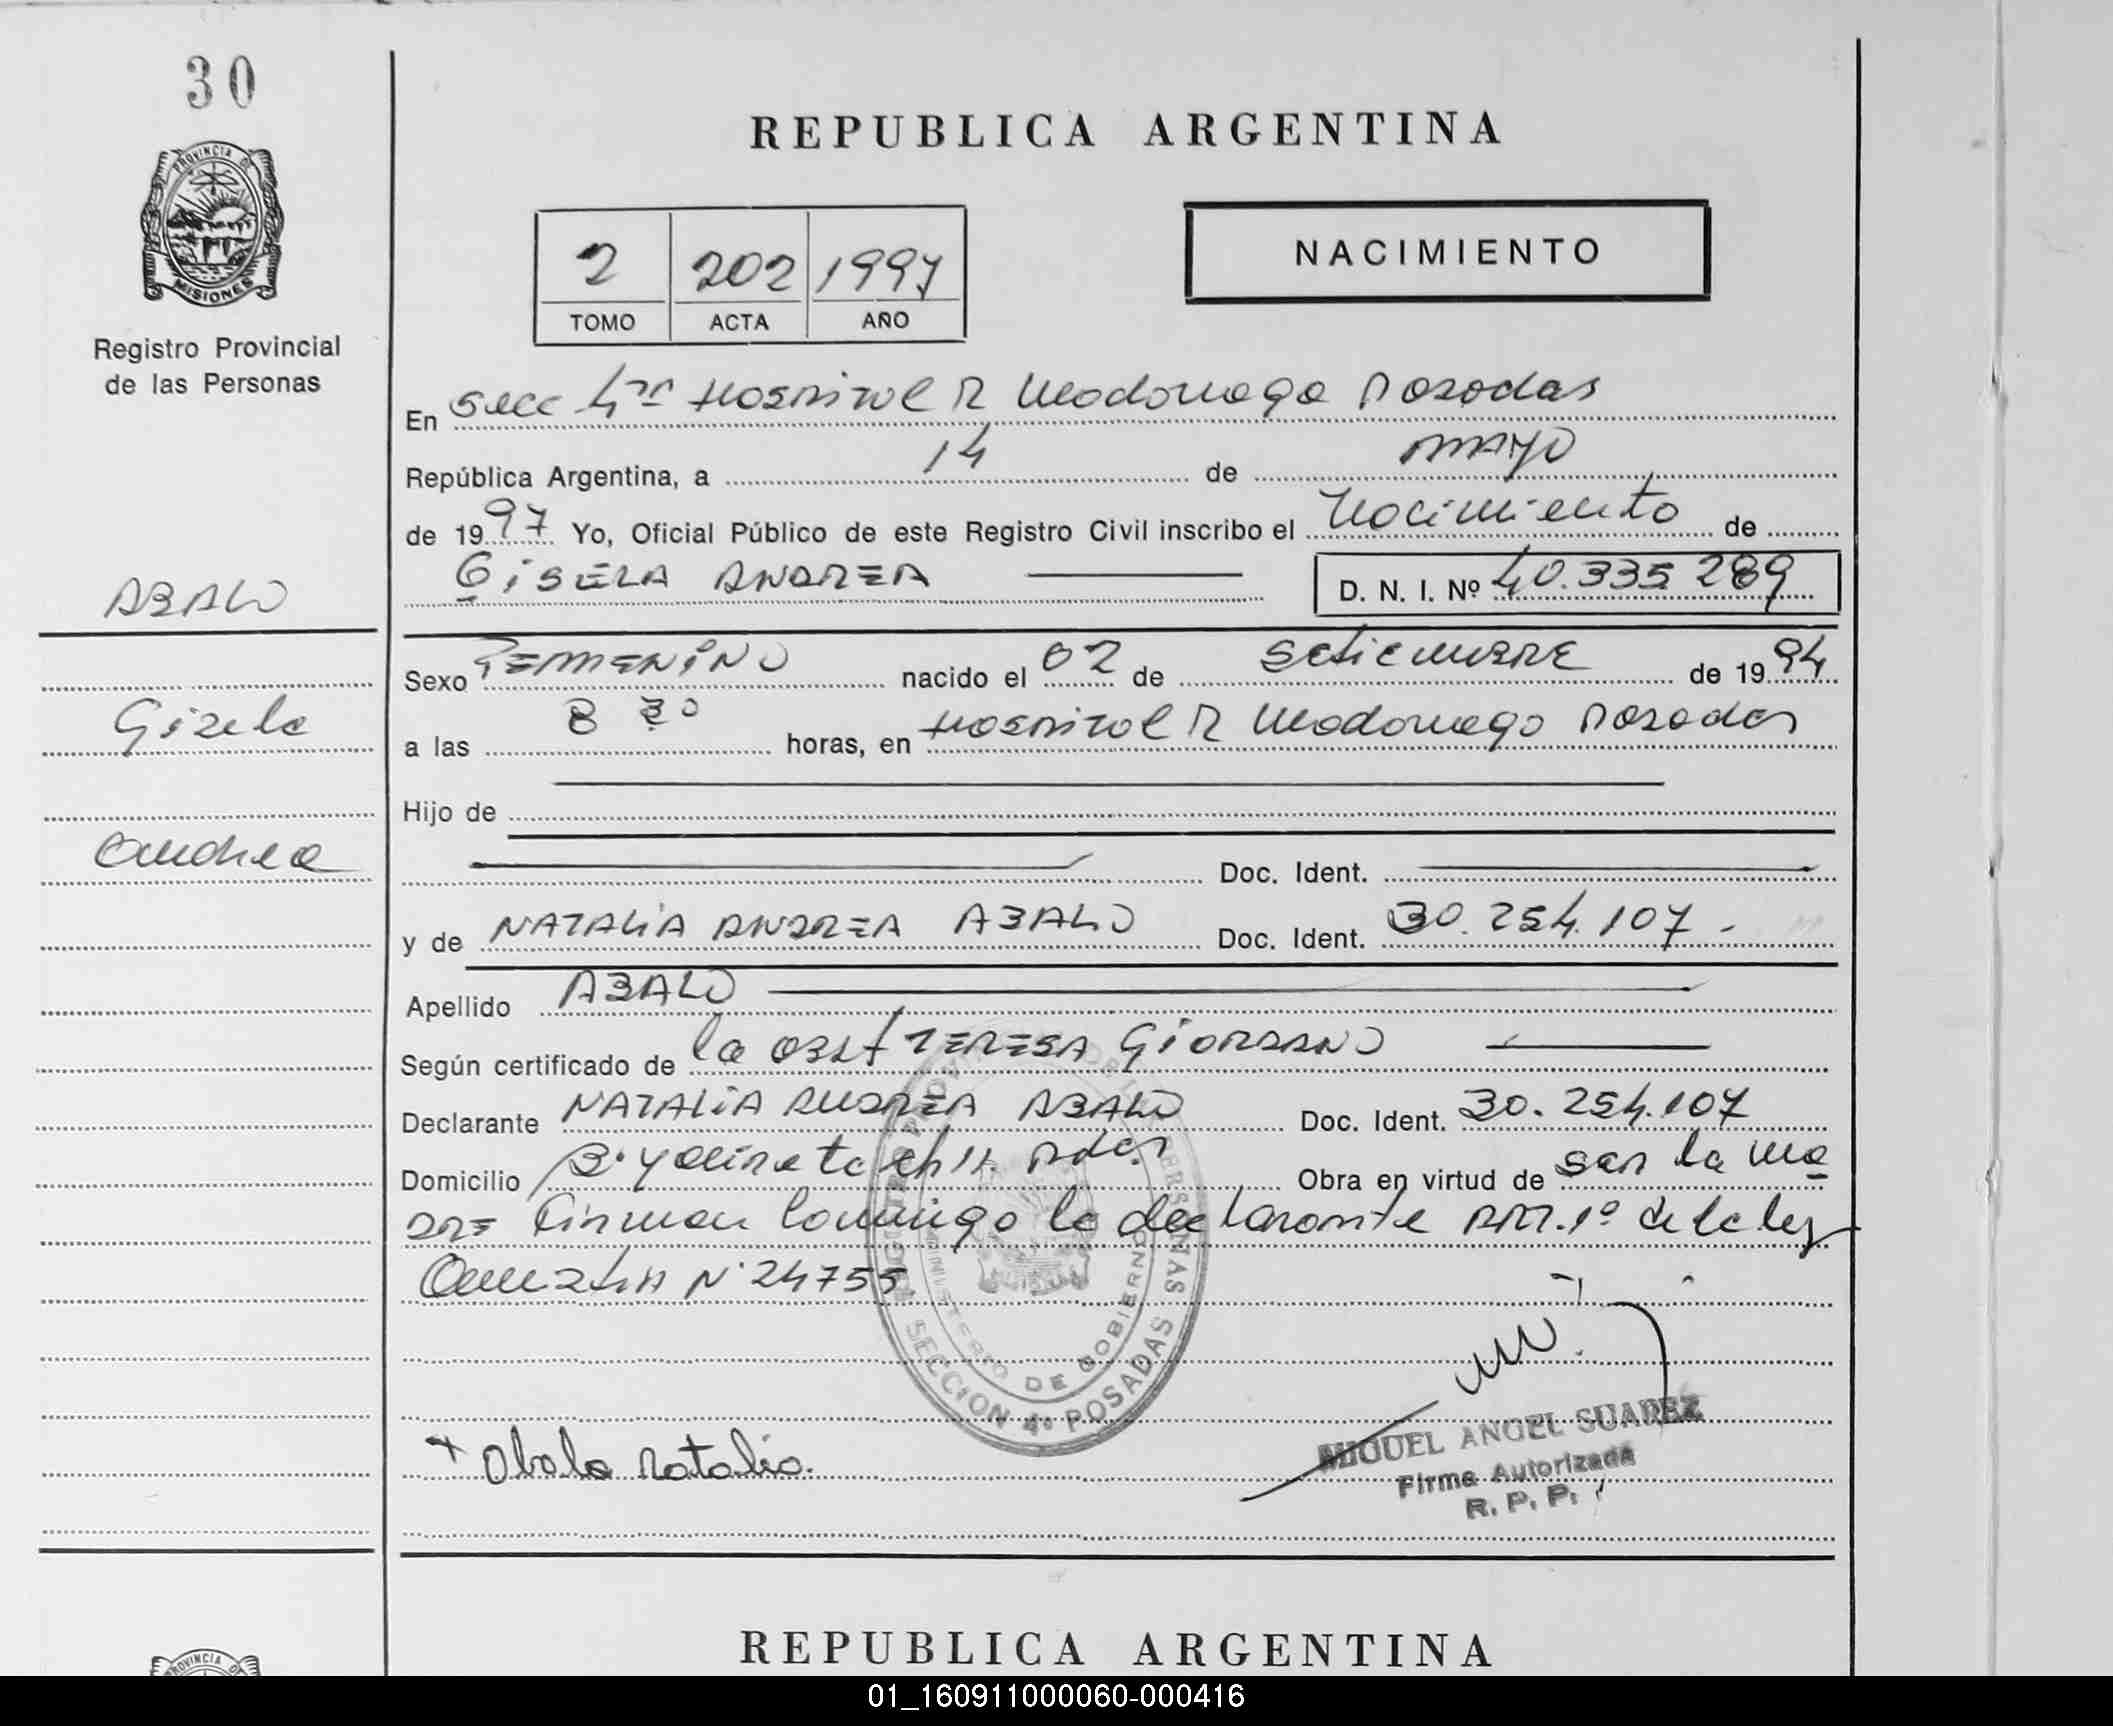 30
REPUBLICA ARGENTINA
PROVINCIA DE MISIONES
Registro Provincial
de las Personas
2 202 1997
TOMO ACTA AÑO
NACIMIENTO
En Secc 4ta Hospital R Madariaga Posadas
República Argentina, a 14 de MAYO
de 1997 Yo, Oficial Público de este Registro Civil inscribo el Nacimiento de
GISELA ANDREA D. N. I. Nº 40.335 289
ABALO
Gisela
Andrea
Sexo FEMENINO nacido el 02 de SETIEMBRE de 1994
a las 8 horas, en Hospital R Madariaga Posadas
Hijo de
Doc. Ident.
y de NATALIA ANDREA ABALO Doc. Ident. 30.254.107
Apellido ABALO
Según certificado de la Obst TERESA GIORDANO
Declarante NATALIA ANDREA ABALO Doc. Ident. 30.254.107
Domicilio Bº Pdas Obra en virtud de ser la ma
dre Firman conmigo la declarante 1º de la ley
Nº 24755
REGISTRO PROVINCIAL DE LAS PERSONAS
MINISTERIO DE GOBIERNO
SECCION 4º POSADAS
+ Abalo Natalia.
MIGUEL ANGEL SUAREZ
Firma Autorizada
R. P. P.
REPUBLICA ARGENTINA
PROVINCIA DE
01_160911000060-000416